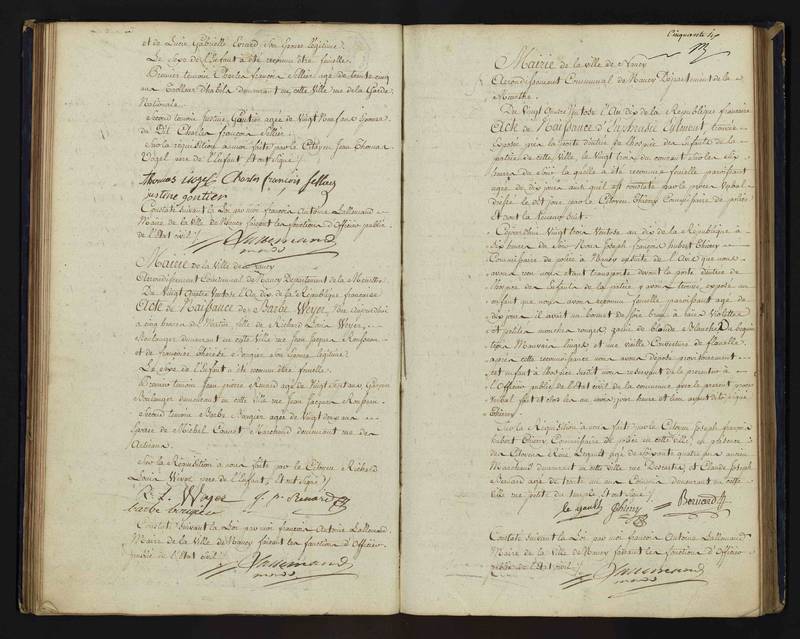 et de Lucie Gabrielle Evrard Son Epouse légitime.
Le Sexe de l'Enfant a été reconnu être femelle.
Premier temoin Charles françois Sellier agé de trente cinq
ans demeurant en cette Ville rue de la Garde
Nationale.
Second temoin Justine Gautier agée de Vingt Epouse
du Dit Charles françois Sellier.
Sur la requisition a nous faite par le Citoyen Jean Thomas
Vogel pere de l'Enfant Et ont Signé
thomas Charles françois sellier
justine gautier
Constaté suivant la Loi par moi françois Antoine Lallemand
Maire de la Ville de Nancy faisant les fonctions d'Officier public
de l'Etat civil
Lallemand
Mairie de la Ville de Nancy
Arrondissement Communal de Nancy Departement de la Meurthe
Du Vingt Quatre Ventose l'An dix de la République française
Acte de Naissance de Barbe Weyer, Née aujourd'hui
a cinq heures du Matin fille de Richard Louis Weyer,
Boulanger demeurant en cette Ville rue Jean Jacques Rousseau
et de françoise Thérèse Son Epouse légitime.
Le Sexe de l'Enfant a été reconnu être femelle.
Premier temoin Jean pierre Renard agé de Vingt Sept ans, Garçon
Boulanger demeurant en cette Ville rue Jean Jacques Rousseau.
Second temoin Barbe agée de Vingt deux ans
Epouse de Michel Marchand demeurant rue des
Artisans.
Sur la Requisition à nous faite par le Citoyen Richard
Louis Weyer pere de l'Enfant, Et ont Signé
R. L. Weyer j. p. Renard
barbe
Constaté suivant la Loi par moi françois Antoine Lallemand
Maire de la Ville de Nancy faisant les fonctions d'Officier
public de l'Etat civil
Lallemand
Cinquante
Mairie de la ville de Nancy
Arrondissement Communal de Nancy Département de la
Meurthe
Du Vingt Quatre Ventose l'An dix de la République française
Acte de Naissance d'Euphrasie Clément, trouvée
Exposée par la porte d'entrée de l'hospice des Enfants de la
patrie de cette Ville, le Vingt trois du courant
heures du soir la quelle a été reconnue femelle paroissant
agée de dix jours, ainsi qu'il est constaté par le procès Verbal
dressé le dit jour par le Citoyen Thiery Commissaire de police
Et dont la teneur suit.
Cejourd'hui Vingt trois Ventose an dix de la République à
Six heures du Soir Nous Joseph françois hubert Thiery
Commissaire de police à Nancy de l'Avis que nous
avons nous nous étant transporté devant la porte d'entrée de
l'hospice des Enfants de la patrie y avons trouvé exposé un
enfant que nous avons reconnu femelle paroissant agé de
dix jours il avait un bonnet de Soie
et petits mouchoir rouge, garni de blonde Blanche, De
trois Mauvais linges et une vieille Couverture de flanelle.
après cette reconnoissance nous avons déposé provisoirement
cet enfant à l'hospice susdit nous reservant de le presenter à
l'Officier public de l'Etat civil de la commune par le present procès
Verbal fait et clos les an mois jour heure et lieu avant dits signé
Thiery.
Sur la Requisition à nous fait par le Citoyen Joseph françois
hubert Thiery Commissaire de police en cette Ville, en presence
des Citoyens Réné Legault agé de soixante quatre ans ancien
Marchand demeurant en cette Ville rue Descartes, et Claude Joseph
Bernard agé de trente un ans demeurant en cette
Ville rue petite du temple Et ont Signé
le gault thiery Bernard
Constaté suivant la Loi par moi françois Antoine Lallemand
Maire de la Ville de Nancy faisant les fonctions d'Officier
public de l'Etat civil
Lallemand